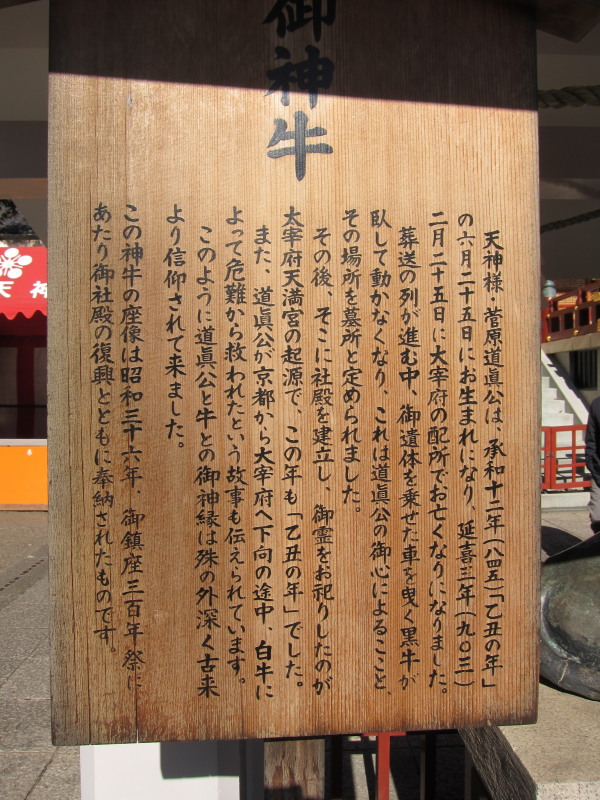 御神牛
天神様・菅原道眞公は、承和十二年(八四五)「乙丑の年」
の六月二十五日にお生まれになり、延喜三年(九〇三)
二月二十五日に大宰府の配所でお亡くなりになりました。
葬送の列が進む中、御遺体を乗せた車を曳く黒牛が
臥して動かなくなり、これは道眞公の御心によることと、
その場所を墓所と定められました。
その後、そこに社殿を建立し、御霊をお祀りしたのが
太宰府天満宮の起源で、この年も「乙丑の年」でした。
また、道眞公が京都から大宰府へ下向の途中、白牛に
よって危難から救われたという故事も伝えられています。
このように道眞公と牛との御神縁は殊の外深く古来
より信仰されて来ました。
この神牛の座像は昭和三十六年、御鎮座三百年祭に
あたり御社殿の復興とともに奉納されたものです。
天神